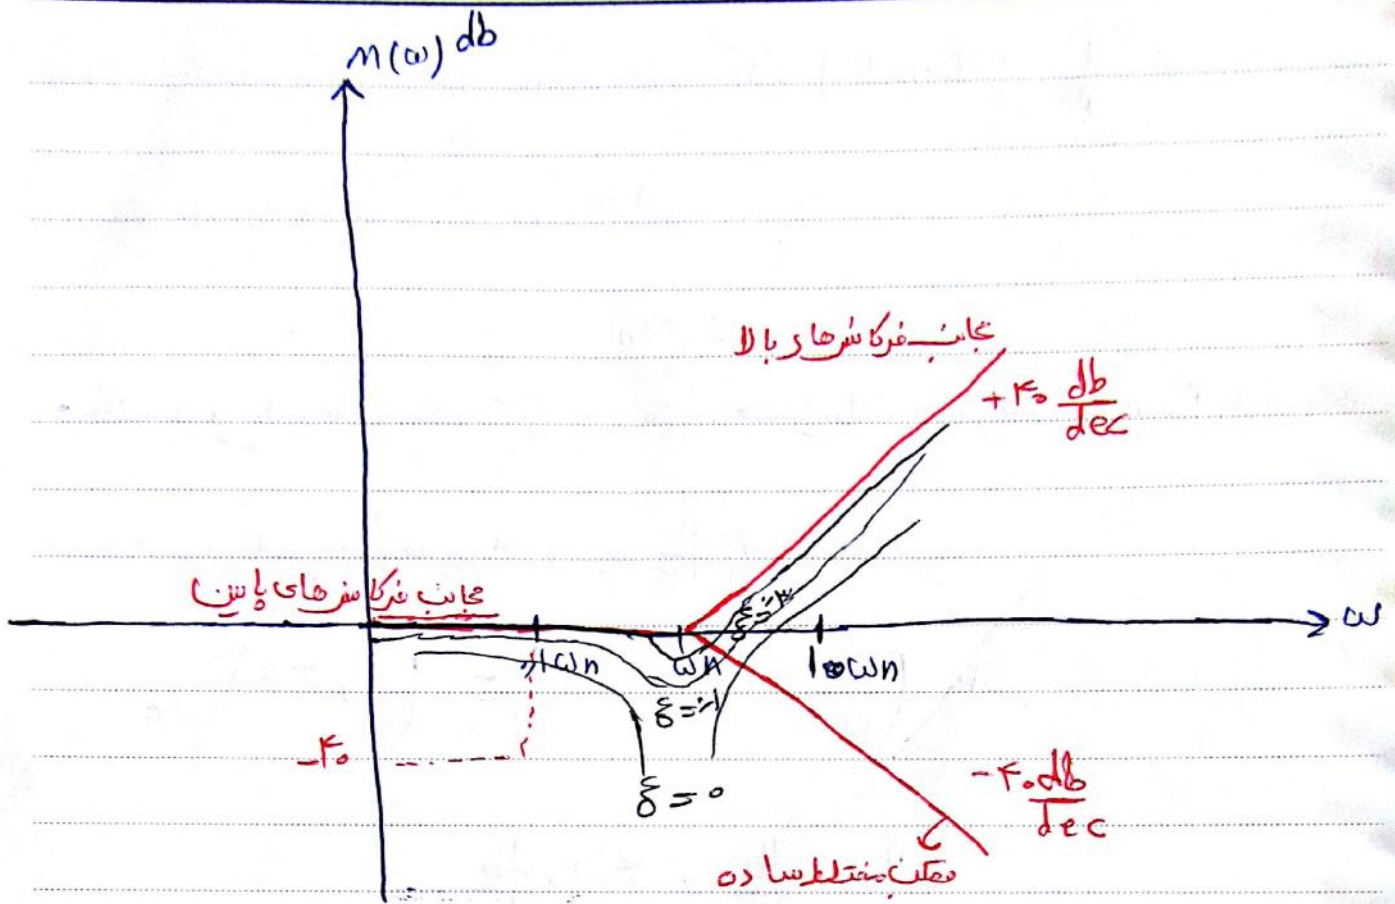 M(ω) db
مجانب فرکانس های بالا
+۴۰ db/dec
مجانب فرکانس های پایین
ω
۰٫۱ωn
ωn
۱۰ωn
ξ=۰٫۳
ξ=۰٫۱
ξ=۰
-۴۰
-۴۰ db/dec
قطب مختلط ساده